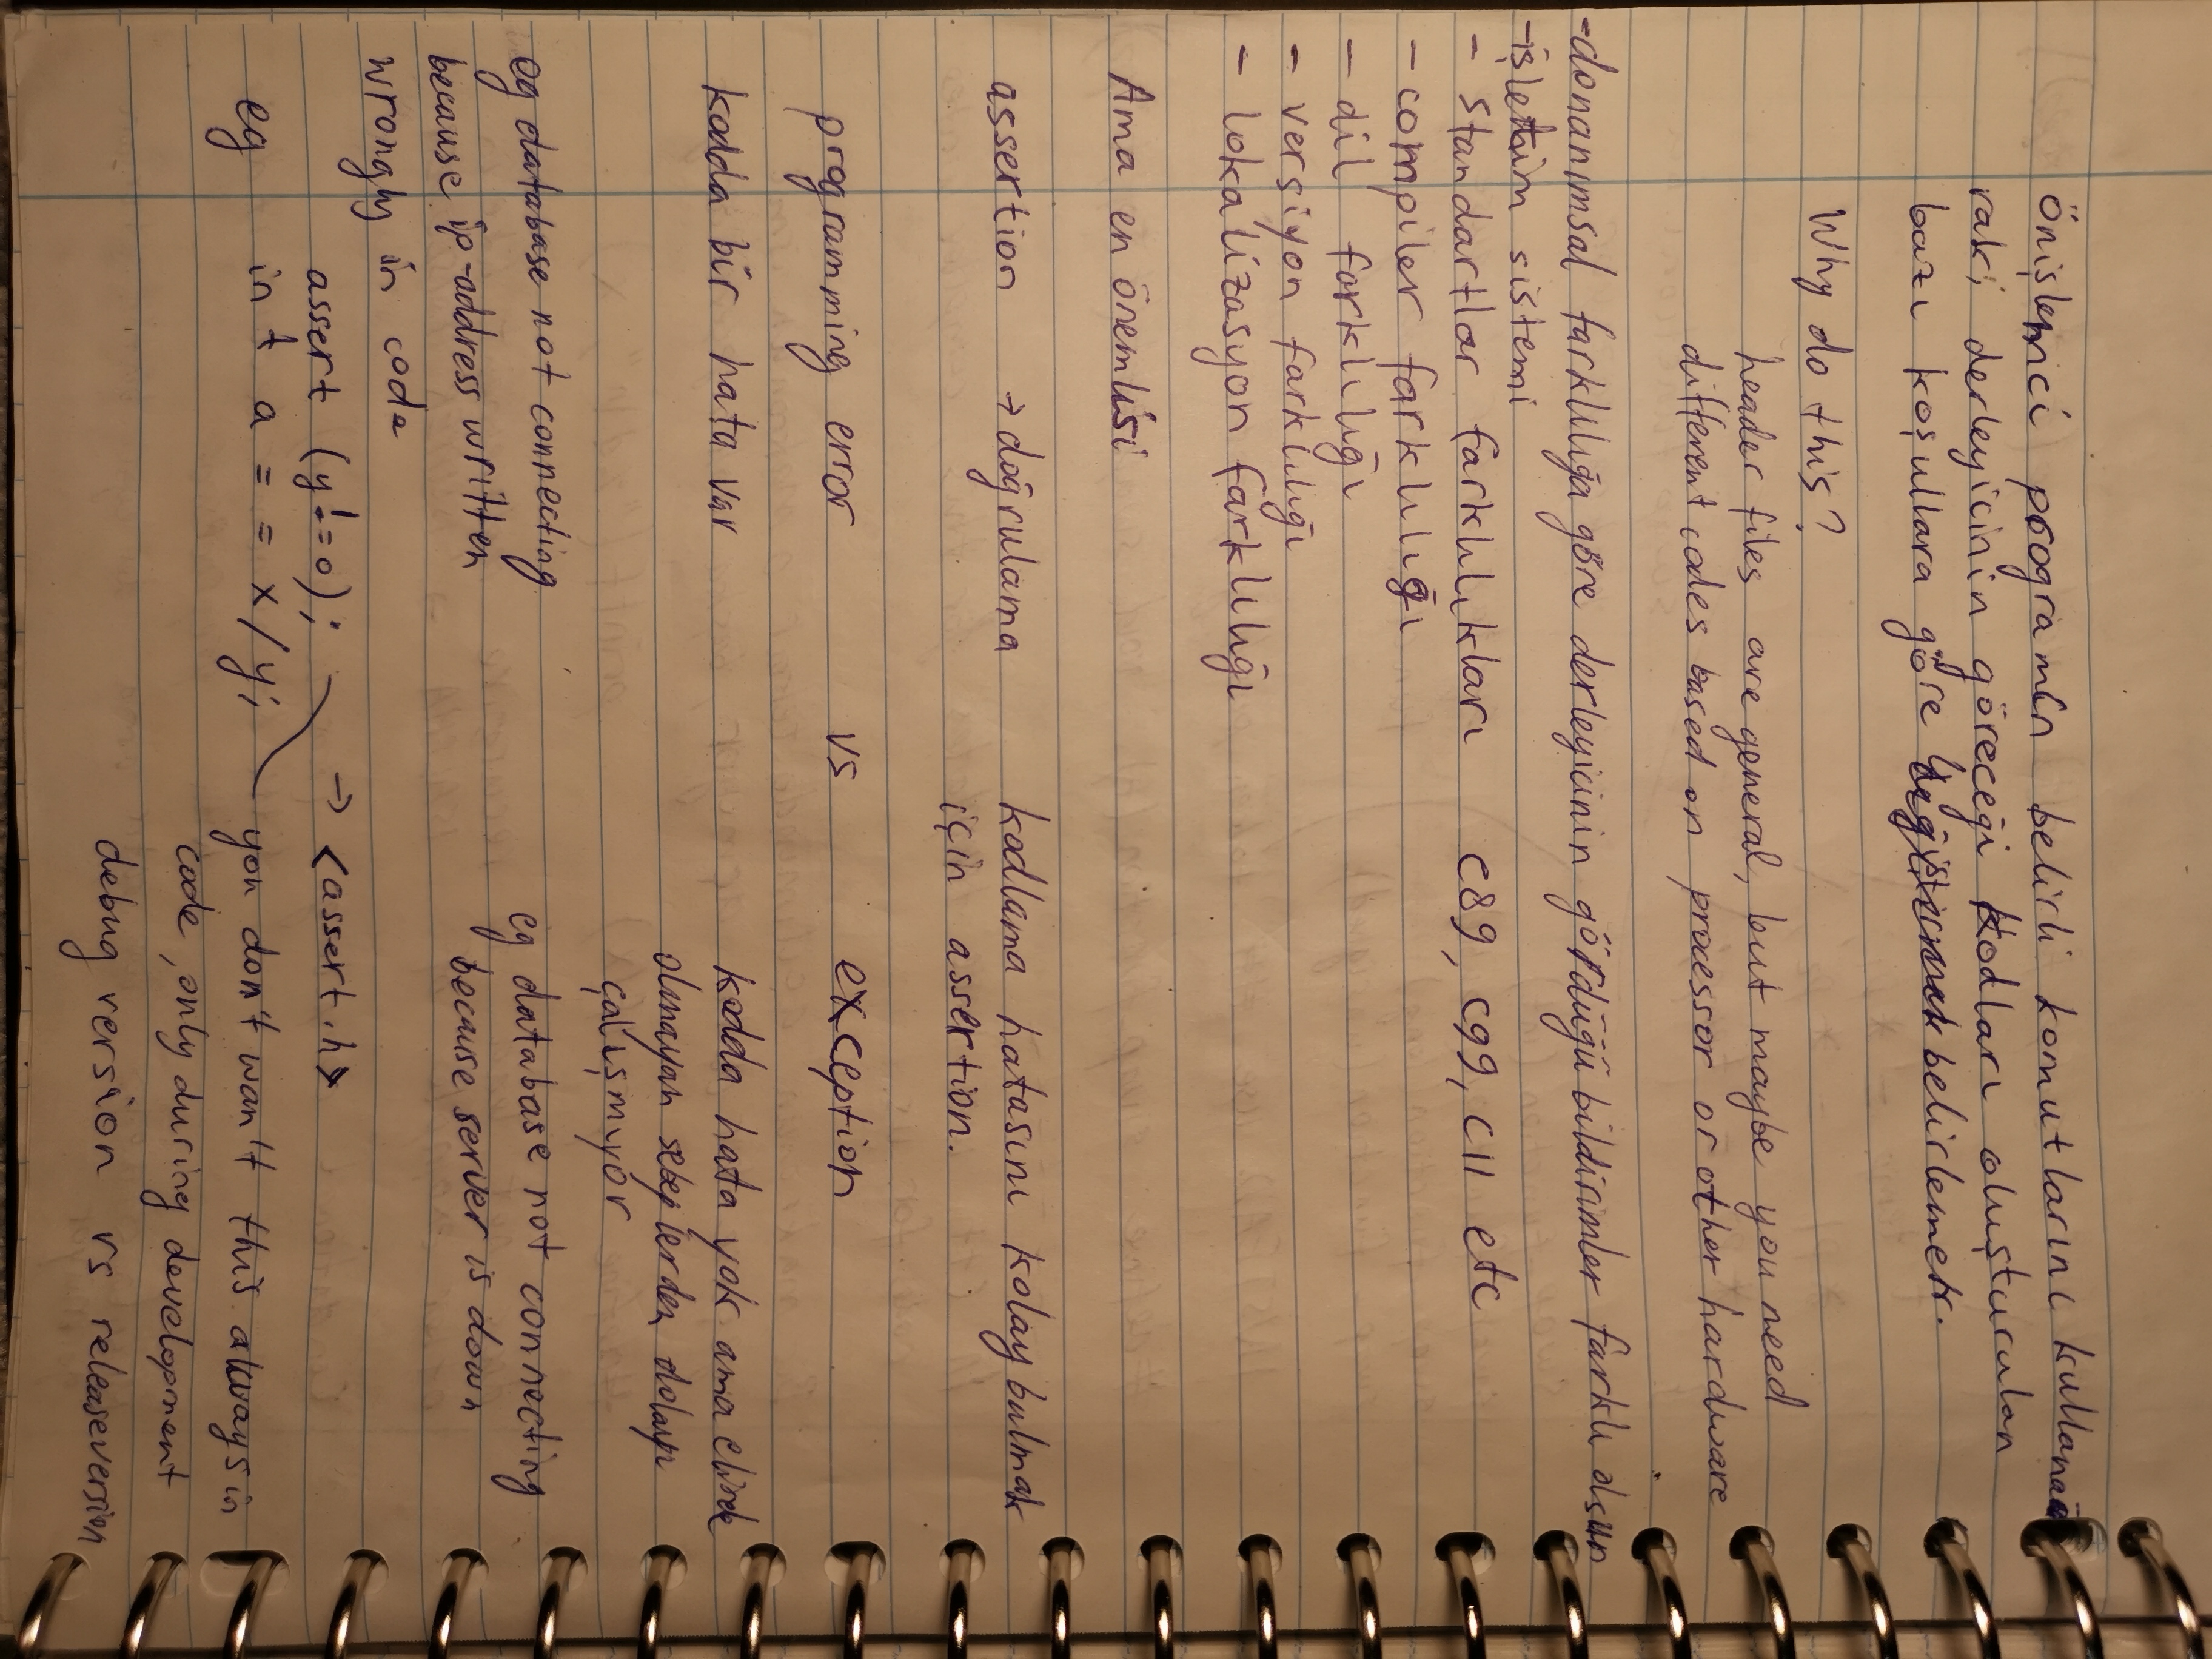 Önişlemci programın belirli komutlarını kullana
rak; derleyicinin göreceği kodları oluşturulan
bazı koşullara göre değiştirmek belirlemek.
Why do this?
header files are general, but maybe you need
different codes based on processor or other hardware
-donanımsal farklılığa göre derleyicinin gördüğü bildirimler farklı olsun
-işletim sistemi
- Standartlar farklılıkları c89, c99, c11 etc
- compiler farklılığı
- dil farklılığı
- versiyon farklılığı
- lokalizasyon farklılığı
Ama en önemlisi
assertion → doğrulama kodlama hatasını kolay bulmak
için assertion.
programming error vs exception
kodda bir hata var kodda hata yok ama elinde
olmayan sebeplerden dolayı
çalışmıyor
eg database not connecting eg database not connecting
because ip-address written because server is down
wrongly in code
assert (y!=0); → <assert.h>
eg int a = = x/y; you don't wan't this always in
code, only during development
debug version vs releaseversion